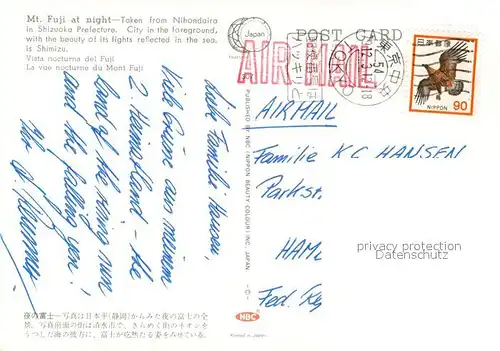 Mt. Fuji at night—Taken from Nihondaira
in Shizuoka Prefecture. City in the foreground,
with the beauty of its lights reflected in the sea,
is Shimizu.
Vista nocturna del Fuji
La vue nocturne du Mont Fuji
Liebe Familie Hansen,
Viele Grüsse aus meinem
2. Heimatland - the
land of the rising sun
and the falling yen!
Ihr
夜の富士—写真は日本平(静岡)からみた夜の富士の全
景。写真前面の街は清水市で、きらめく街のネオンを
うつした海の彼方に、富士が屹然たる姿をみせている。
Japan
POST CARD
AIR MAIL
東京中央
54
日本郵便
NIPPON 90
PUBLISHED BY NBC (NIPPON BEAUTY COLOUR) INC., JAPAN.
NBC
Printed in Japan
AIRMAIL
Familie K C HANSEN
Parkst.
HAM
Fed. Rep
privacy protection
Datenschutz